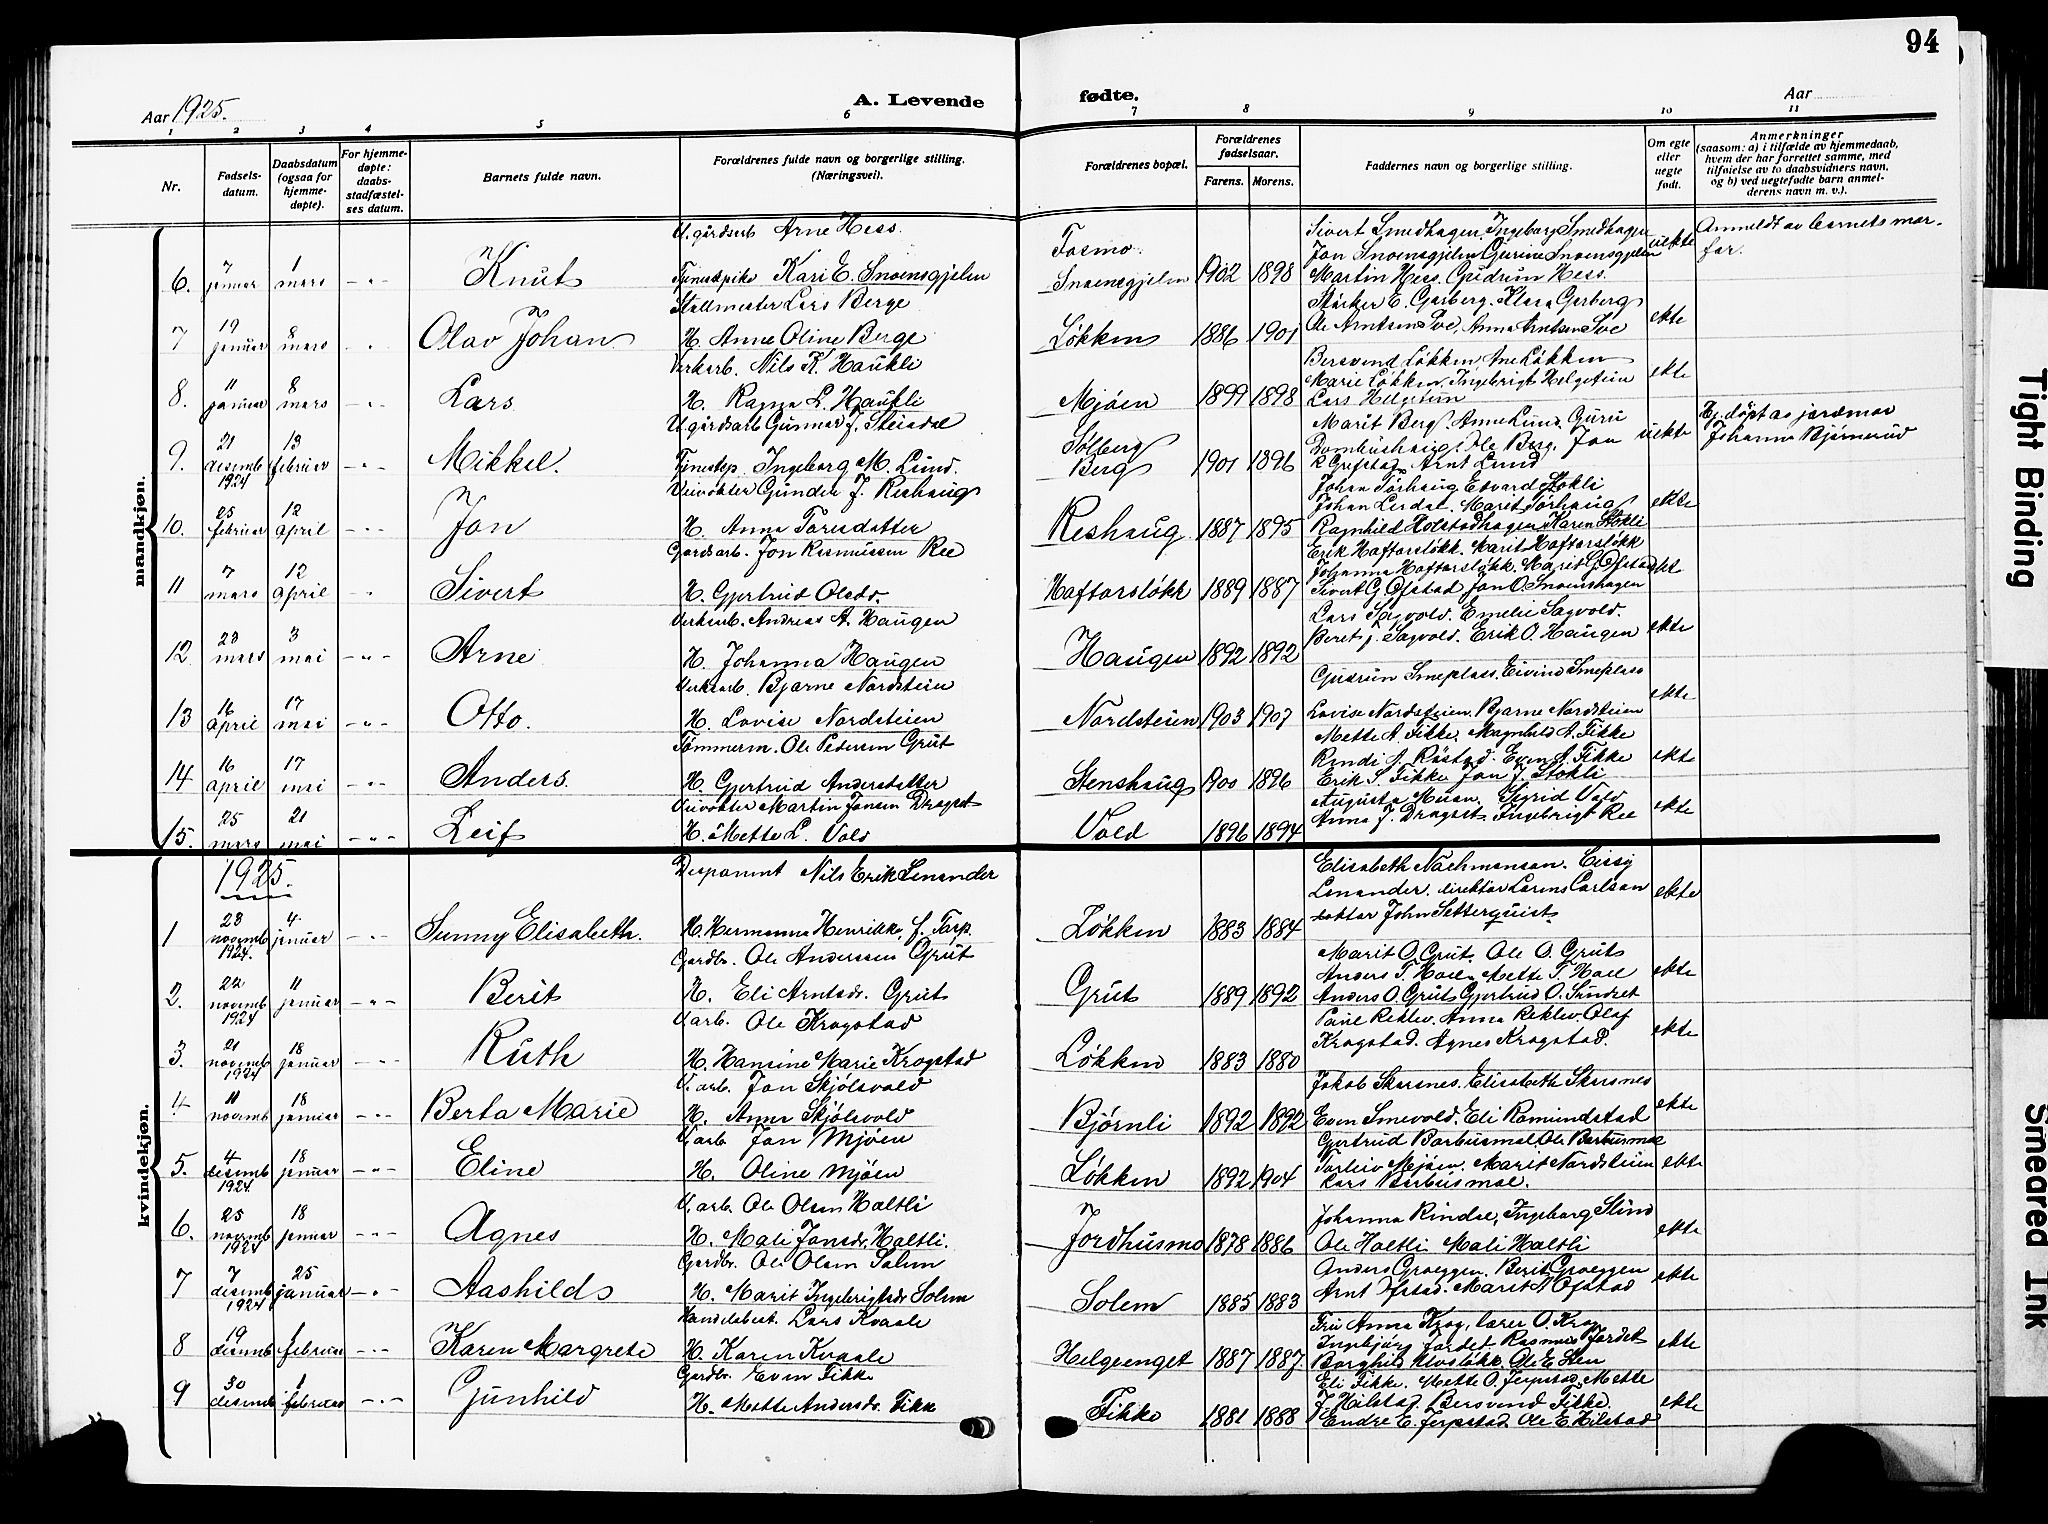 94
Aar 1925.
A. Levende fødte.
Aar
1 2 3 4 5 6 7 8 9 10 11
Nr.
Fødsels-
datum.
Daabsdatum
(ogsaa for
hjemme-
døpte).
For hjemme-
døpte:
daabs-
stadfæstel-
ses datum.
Barnets fulde navn.
Forældrenes fulde navn og borgerlige stilling.
(Næringsvei).
Forældrenes bopæl.
Forældrenes
fødselsaar.
Farens. Morens.
Faddernes navn og borgerlige stilling.
Om egte
eller
uegte
født.
Anmerkninger
(saasom: a) i tilfælde av hjemmedaab,
hvem der har forrettet samme, med
tilføielse av to daabsvidners navn,
og b) ved uegtefødte barn anmel-
derens navn m. v.).
mandkjøn.
6. 7 januar 1 mars - " - Knut
U. gårdsarb Arne Hess.
Tjenestpike Kari E. Snoensgjelen
Fosmo
Snoensgjelen 1902 1898
Sivert Smedhagen, Ingeborg Smedhagen
Jon Snoensgjelen Gurine Snoensgjelen
Martin Hess. Gudrun Hess.
uekte
Anmeldt av barnets mor-
far.
7 19 januar 8 mars Olav Johan
Stallmester Lars Berge
H. Anne Oline Berge
Løkken 1886 1901
Stärker E. Garberg. Klara Garberg
Ole Arntsen Sve, Anna Arntsen Sve
ekte
8. 11 januar 8 mars - " - Lars
Verkarb. Nils K. Haukli
H. Ragna L. Haukli
Mjøen 1899 1898
Bersvend Løkken, Ane Løkken
Marie Løkken, Ingebrigt Helgetun
Lars Helgetun
ekte
9. 21 desemb 1924 13 februar - " - Mikkel.
U gårdsarb Gunnar J. Steisdal
Tjenestep. Ingeborg M. Lund.
Solberg
Berg 1901 1896
Marit Berg, Anne Lund, Guru
Dombushaug, Ole Berg, Jon
R Grefstad, Arnt Lund
uekte
Hj. døpt av jordmor
Johanna Bjørnerud
10. 25 februar 12 april - " - Jon
Veivokter Gunder J. Reshaug
H. Anna Toresdatter
Reshaug 1887 1895
Johan Torhaug Edvard Stokli
Johan Lisdal. Marit Torhaug
Ragnhild Holstadhagen Karen Stokli
ekte
11 7 mars 12 april " Sivert
Gardsarb. Jon Rasmussen Ree
H. Gjertrud Olsdr.
Haftorsløkk 1889 1887
Erik Haftorsløkk. Marit Haftorsløkk
Johanna Haftorsløkk. Marit G. Ofstad
Sivert G. Ofstad Jon O. Snoenshagen
ekt
12 23 mars 3 mai - " - Arne
Verkarb. Andreas A. Haugen
H. Johanna Haugen
Haugen 1892 1892
Lars Sagvold. Emelie Sagvold.
Beret J. Sagvold. Erik O. Haugen
ekte
13 16 april 17 mai - " - Otto.
Verkarb. Bjarne Nordsteien
H. Lovise Nordsteien
Nordsteien 1903 1907
Gudrun Smeplass. Eivind Smeplass
Lovise Nordsteien. Bjarne Nordsteien
ekte
14 16 april 17 mai - " - Anders.
Tømmerm. Ole Pedersen Grut
H. Gjertrud Andersdatter
Stenshaug 1900 1896
Mette A. Fikke. Magnhild A. Fikke
Rindi A. Røstad. Even A. Fikke
Erik S. Fikke Jon J. Stokli
ekte
15. 25 mars 21 mai - " - Leif
Veivokter Martin Jonsen Dragset
H. Mette L. Vold
Vold 1896 1894
Augusta Moen. Sigrid Vold
Anna J. Dragset Ingebrigt Ree
ekte
kvindekjøn.
1925.
1 23 novemb 1924. 4. januar - " - Sunny Elisabeth.
Disponent Nils Erik Lenander
H. Hermanna Henrikke, f. Torp.
Løkken 1883 1884
Elisabeth Nachmanson. Cissy
Lenander. direktør Lorens Carlson
doktor John Setterquist
ekte
2. 22 novemb 1924 11 januar - " - Berit
Gardbr. Ole Anderssen Grut
H. Eli Arntsdr. Grut
Grut 1889 1892
Marit O. Grut. Ole O. Grut
Anders T. Hoel. Mette T. Hoel
Anders O. Grut Gjertrud O. Sundset
ekte
3. 21 novemb 1924 18 januar - " - Ruth
V. arb. Ole Krogstad
H. Hansine Marie Krogstad
Løkken 1883 1880
Paul Reklev. Anna Reklev. Olaf
Krogstad. Agnes Krogstad.
ekte
4. 11 novemb 18 januar - " - Berta Marie
V. arb. Jon Skjølsvold
H. Anna Skjølsvold
Bjørnli 1892 1892
Jakob Skarsnes. Elisabeth Skarsnes
Even Smevold. Eli Romundstad
ekte
5. 4 desemb 1924. 18 januar - " - Eline
V. arb Jon Mjøen
H. Oline Mjøen
Løkken 1892 1904
Gjertrud Barbusmel Ole Barbusmoe
Torleiv Mjøen. Marit Nordsteien
Lars Barbusmoe.
ekte
6. 25 novemb 1924 18 januar - " - Agnes
V. arb Ole Olsen Holtli
H. Mali Jonsdr. Holtli.
Jordhusmo 1878 1886
Johanna Rindal, Ingeborg Slind
Ole Holtli Mali Holtli
ekte
7 7 desemb 1924 25 januar - " - Aashild
Gardbr. Ole Olsen Solem
H. Marit Ingebrigtsdr Solem
Solem 1885 1883
Anders Groeggen. Berit Groeggen
Arnt Ofstad. Marit A Ofstad
ekte
8 19 desemb 1 februar - " - Karen Margrete
Handelsbest. Lars Kvaale
H. Karen Kvaale
Helgeenget 1887 1887.
Fru Anna Krog, lærer O. Krog
Ingebjørg Jordet Rasmus Jordet
Borghild Klovsløkk. Ole E. Sten
ekte
9 30 desemb 1 februar - " - Gunhild
Gardbr. Even Fikke
H. Mette Andersdr. Fikke
Fikke 1881 1888
Eli Fikke. Mette O. Jerpstad, Mette
J. Hilstad. Bersvend Fikke.
Endre E. Jerpstad Ole E Hilstad
ekte
Tight Binding
Smeared Ink